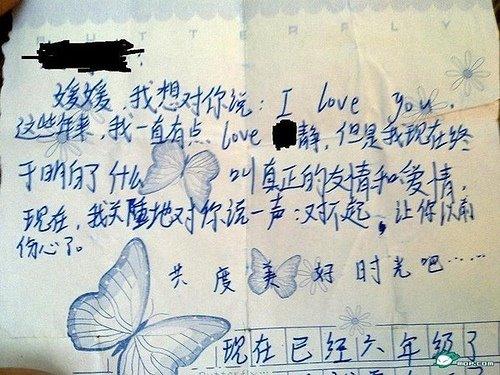 BUTTERFLY
媛媛，我想对你说：I love you，
这些年来，我一直有点 love 静，但是我现在终
于明白了什么叫真正的友情和爱情，
现在，我关隆地对你说一声：对不起，让你以前
伤心了。
共度美好时光吧……
现在已经六年级了
mop.com